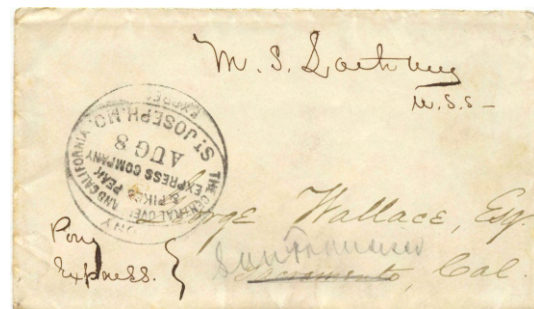 M. S. Latham
U.S.S-
PONY EXPRESS
THE CENTRAL OVERLAND CALIFORNIA
AND PIKES PEAK
EXPRESS COMPANY
AUG 8
ST. JOSEPH. MO.
George Wallace, Esq.
San Francisco
Sacramento, Cal.
Pony
Express.